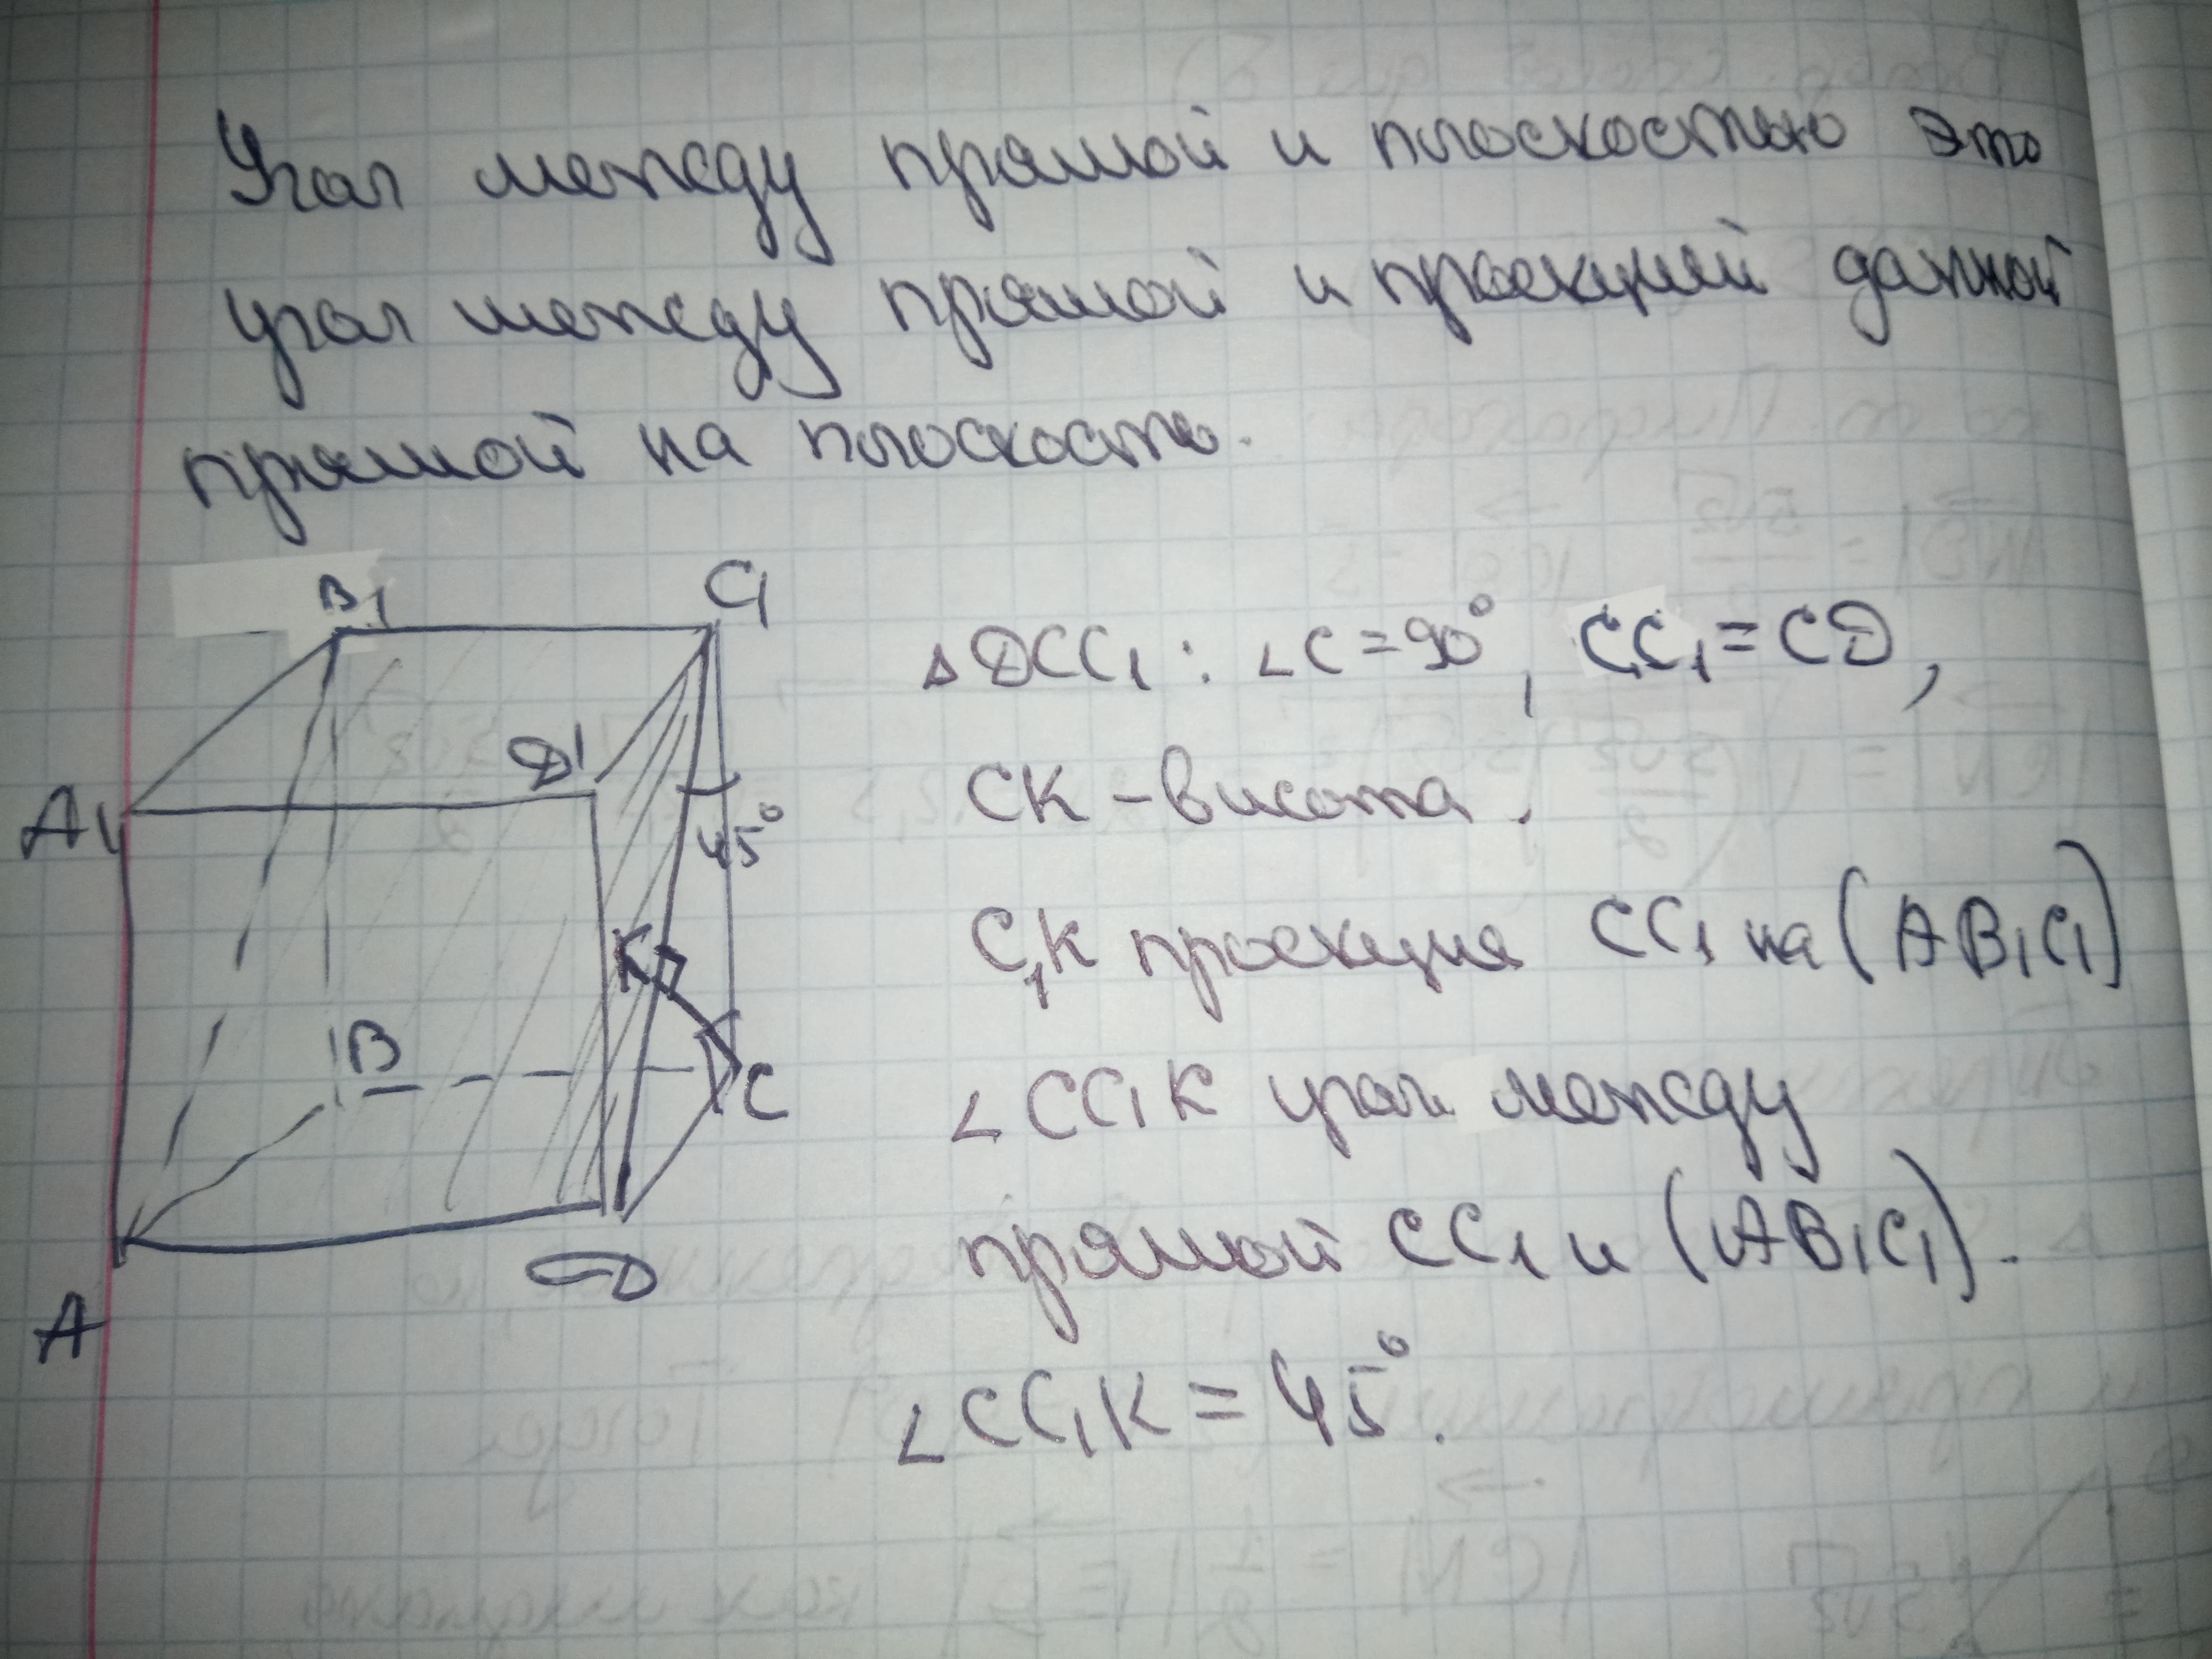 Угол между прямой и плоскостью это
угол между прямой и проекцией данной
прямой на плоскость.
B1
C1
△DCC1 : ∠C=90°, CC1=CD,
D1
A1
45°
CK – висота.
K
C1K проекция CC1 на (AB1C1)
B
C
∠CC1K угол между
прямой CC1 и (AB1C1).
D
A
∠CC1K = 45°.